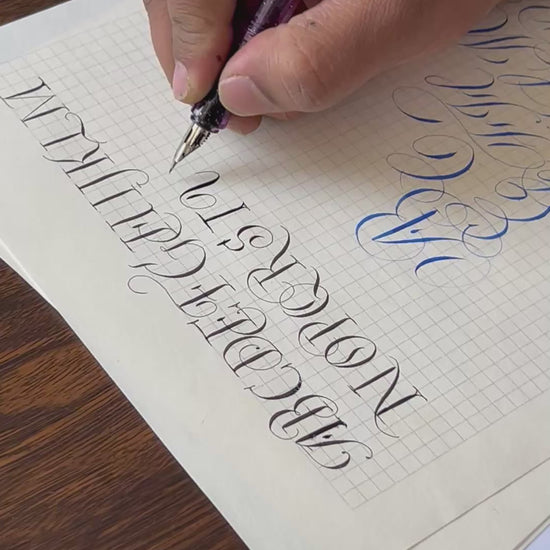 ABCDEFGHIJKLM
NOPQRST
A